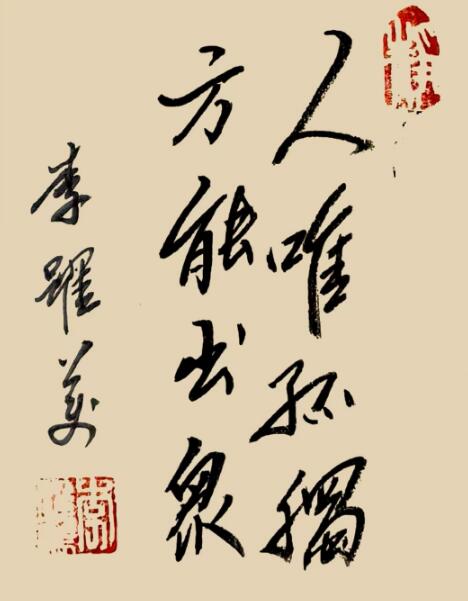 人唯孤獨
方能出眾
李躍